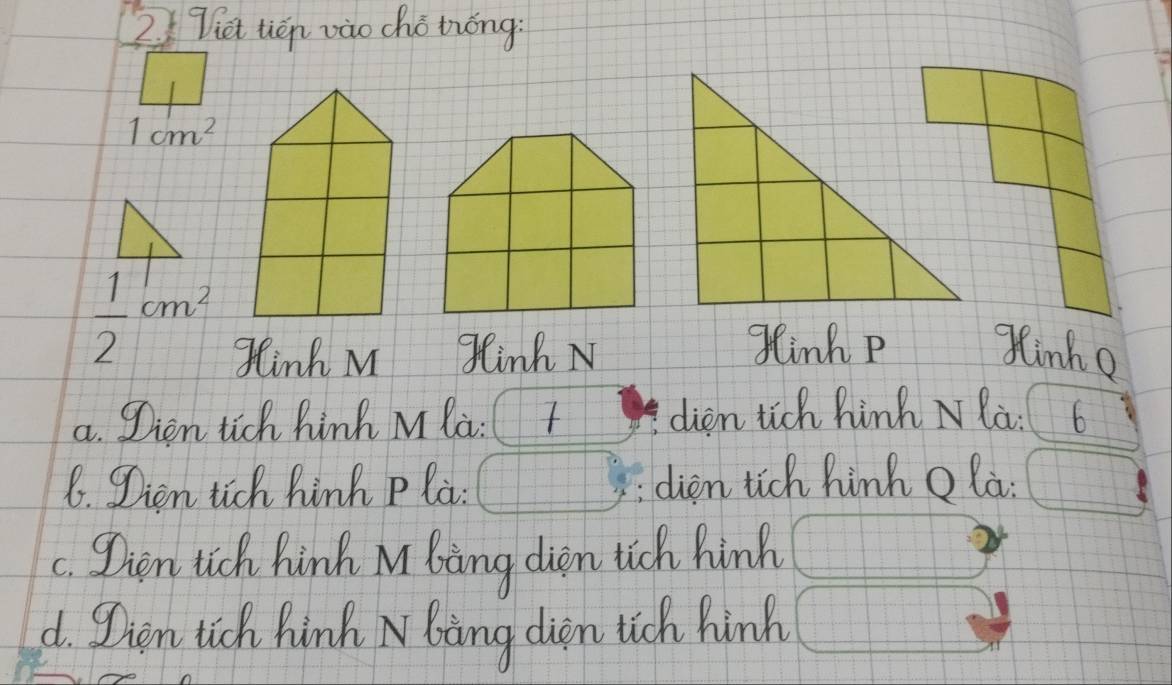 2. Viết tiếp vào chỗ trống:
1 cm²
1/2 cm²
Hình M Hình N Hình P Hình Q
a. Diện tích hình M là: 7 ; diện tích hình N là: 6
b. Diện tích hình P là: ; diện tích hình Q là:
c. Diện tích hình M bằng diện tích hình
d. Diện tích hình N bằng diện tích hình